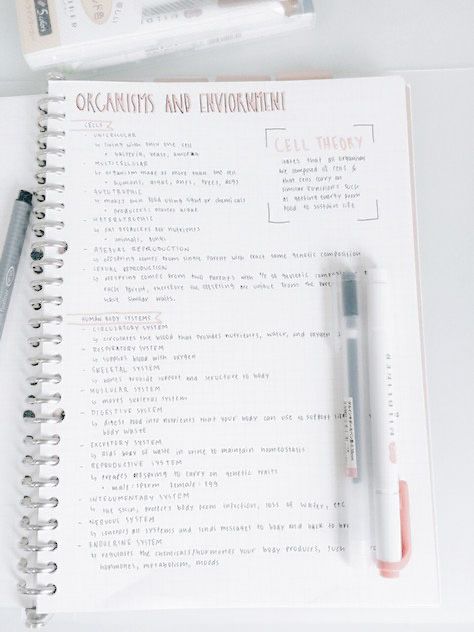 ORGANISMS AND ENVIORNMENT
CELLS
- UNICELLULAR
↳ living with only one cell
• bacteria, yeast,
- MULTICELLULAR
↳ organism made of more than one cell
• humans, trees, dogs
- AUTOTROPHIC
↳ makes own food using sun or chemicals
• producers
- HETEROTROPHIC
↳ eat producers for nutrients
• animals,
- ASEXUAL REPRODUCTION
↳ offspring comes from single parent with exact same genetic composition
- SEXUAL REPRODUCTION
↳ offspring comes from two parents with ½ of genetic
each parent, therefore the offspring are unique from the
have similar traits.
CELL THEORY
states that all organisms
are composed of cells &
that cells carry on
similar functions such
as getting energy from
food to sustain life
HUMAN BODY SYSTEMS
- CIRCULATORY SYSTEM
↳ circulates the blood that provides nutrients, water, and oxygen
- RESPIRATORY SYSTEM
↳ supplies blood with oxygen
- SKELETAL SYSTEM
↳ bones provide support and structure to body
- MUSCULAR SYSTEM
↳ moves skeletal system
- DIGESTIVE SYSTEM
↳ digest food into nutrients that your body can use to support life
body waste
- EXCRETORY SYSTEM
↳ rids body of waste in urine to maintain homeostasis
- REPRODUCTIVE SYSTEM
↳ creates offspring to carry on genetic traits
• male/sperm female/egg
- INTEGUMENTARY SYSTEM
↳ the skin, protects body from infections, loss of water, etc
- NERVOUS SYSTEM
↳ controls all systems and sends messages to body and back to
- ENDOCRINE SYSTEM
↳ regulates the chemicals/hormones your body produces, such
hormones, metabolism, moods